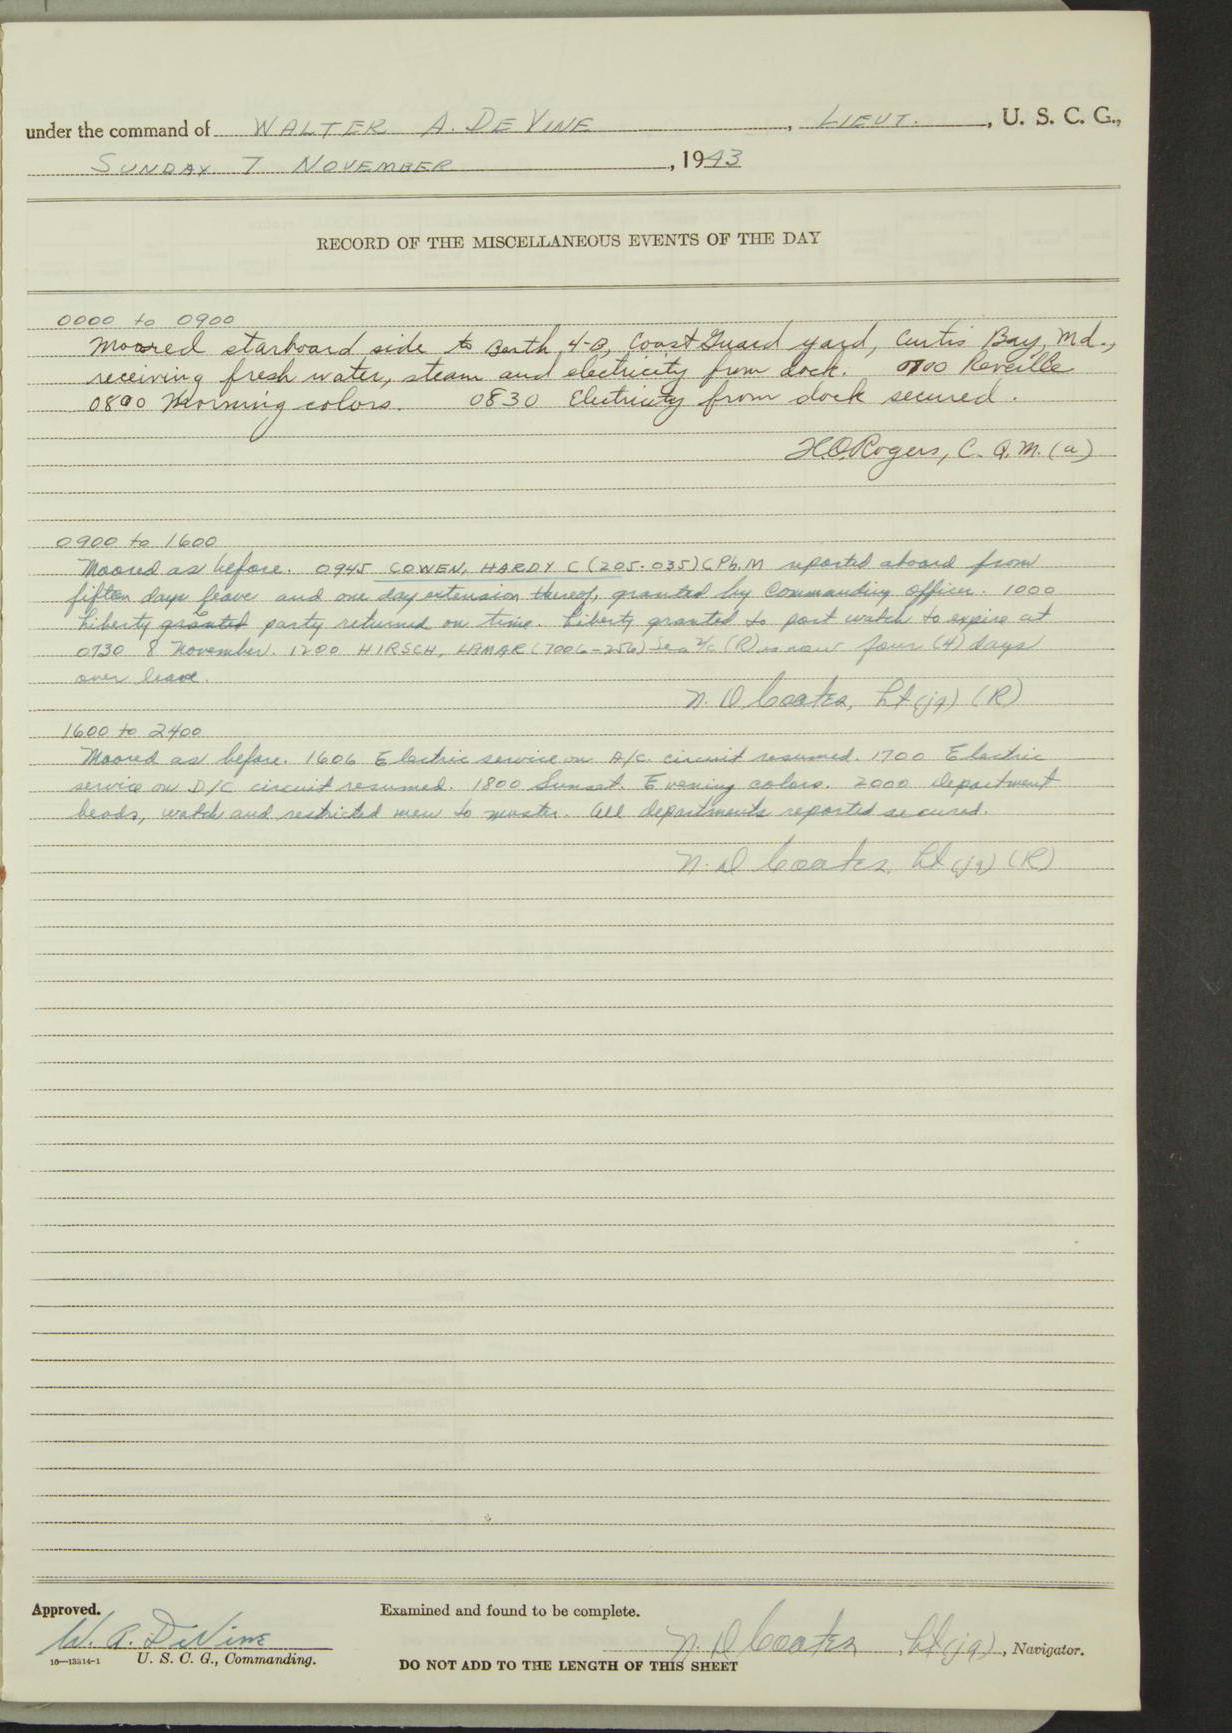 under the command of WALTER A. DE VINE, LIEUT., U. S. C. G.,
SUNDAY 7 NOVEMBER, 1943
RECORD OF THE MISCELLANEOUS EVENTS OF THE DAY
0000 to 0900
Moored starboard side to Berth 4-B, Coast Guard yard, Curtis Bay, Md.,
receiving fresh water, steam and electricity from dock. 0700 Reveille
0800 Morning colors. 0830 Electricity from dock secured.
H.O. Rogers, C. Q. M. (a)
0900 to 1600
Moored as before. 0945 COWEN, HARDY C (205-035) CPh.M reported aboard from
fifteen days leave and one day extension thereof, granted by Commanding Officer. 1000
Liberty granted party returned on time. Liberty granted to port watch to expire at
0730 8 November. 1200 HIRSCH, LAMAR (7006-256) Sea 2/c (R) is now four (4) days
over leave.
N. D Coates, Lt (jg) (R)
1600 to 2400
Moored as before. 1606 Electric service on A/C. circuit resumed. 1700 Electric
service on D/C circuit resumed. 1800 Sunset. Evening colors. 2000 Department
heads, watch and restricted men to muster. All departments reported secured.
N. D Coates, Lt (jg) (R)
Approved. Examined and found to be complete.
W. A. DeVine N. D Coates, Lt (jg), Navigator.
16—13814-1 U. S. C. G., Commanding. DO NOT ADD TO THE LENGTH OF THIS SHEET